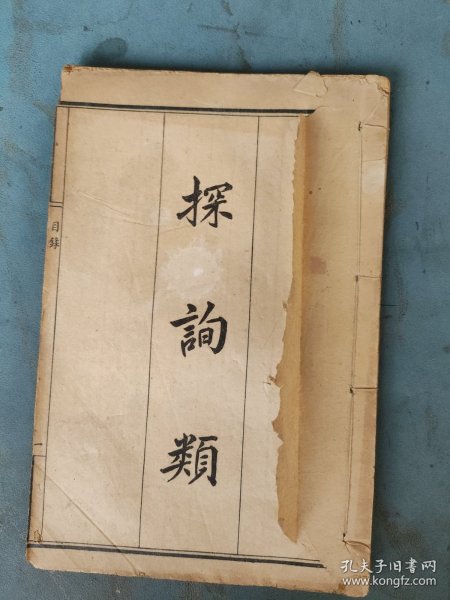 探詢類
目錄
一
孔夫子旧书网
www.kongfz.com